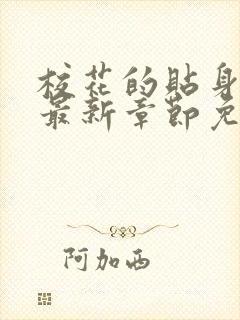 校花的贴身
最新章节免
阿加西